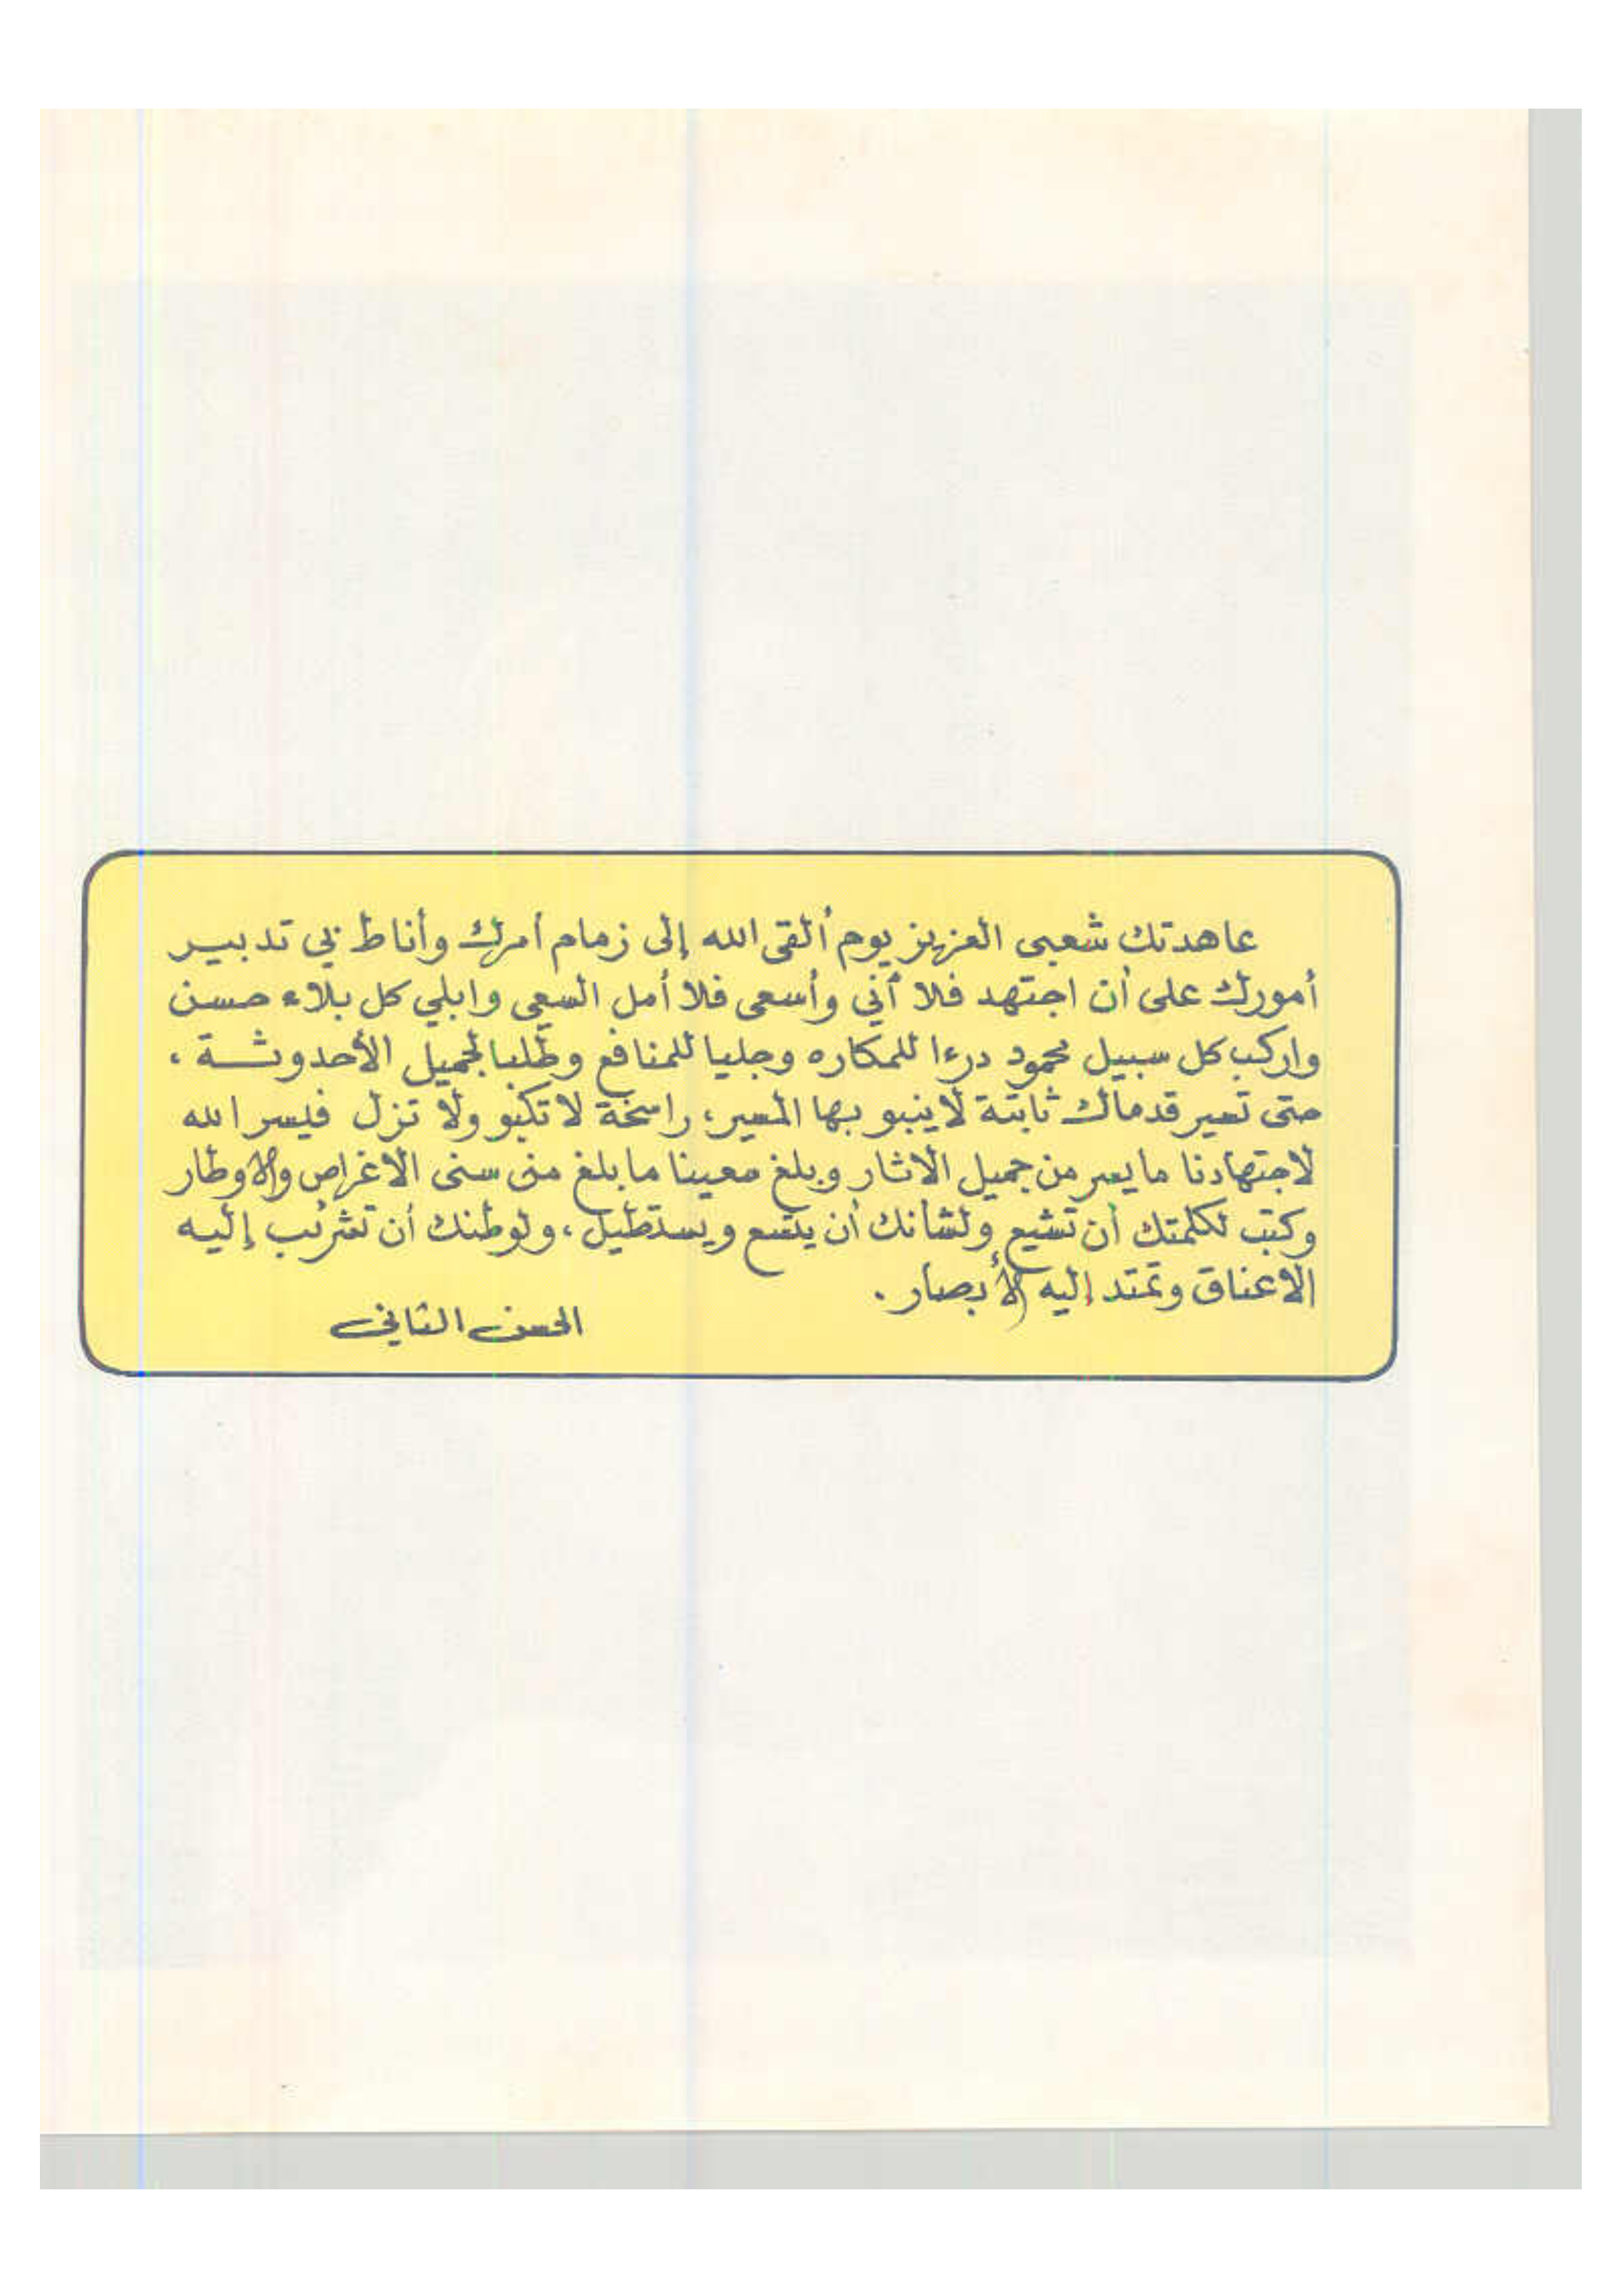 عاهدتك شعبي العزيز يوم ألقى الله إلى زمام أمرك وأناط بي تدبير
أمورك على أن اجتهد فلا آني وأسعى فلا أمل السعي وابلي كل بلاء حسن
واركب كل سبيل محمود درءا للمكاره وجلبا للمنافع وطلبا لجميل الأحدوثة ،
حتى تسير قدماك ثابتة لا ينبو بها المسير، راسخة لا تكبو ولا تزل فيسر الله
لاجتهادنا ما يسر من جميل الاثار وبلغ سعينا ما بلغ من سنى الاغراض والاوطار
وكتب لكلمتك أن تشيع ولشأنك أن يتسع ويستطيل، ولوطنك أن تشرئب إليه
الاعناق وتمتد إليه الأبصار .
الحسن الثاني